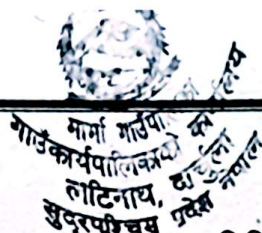 मार्मा गाउँपालिका
गाउँकार्यपालिकाको कार्यालय
लाटिनाथ, दार्चुला
सुदूरपश्चिम प्रदेश नेपाल